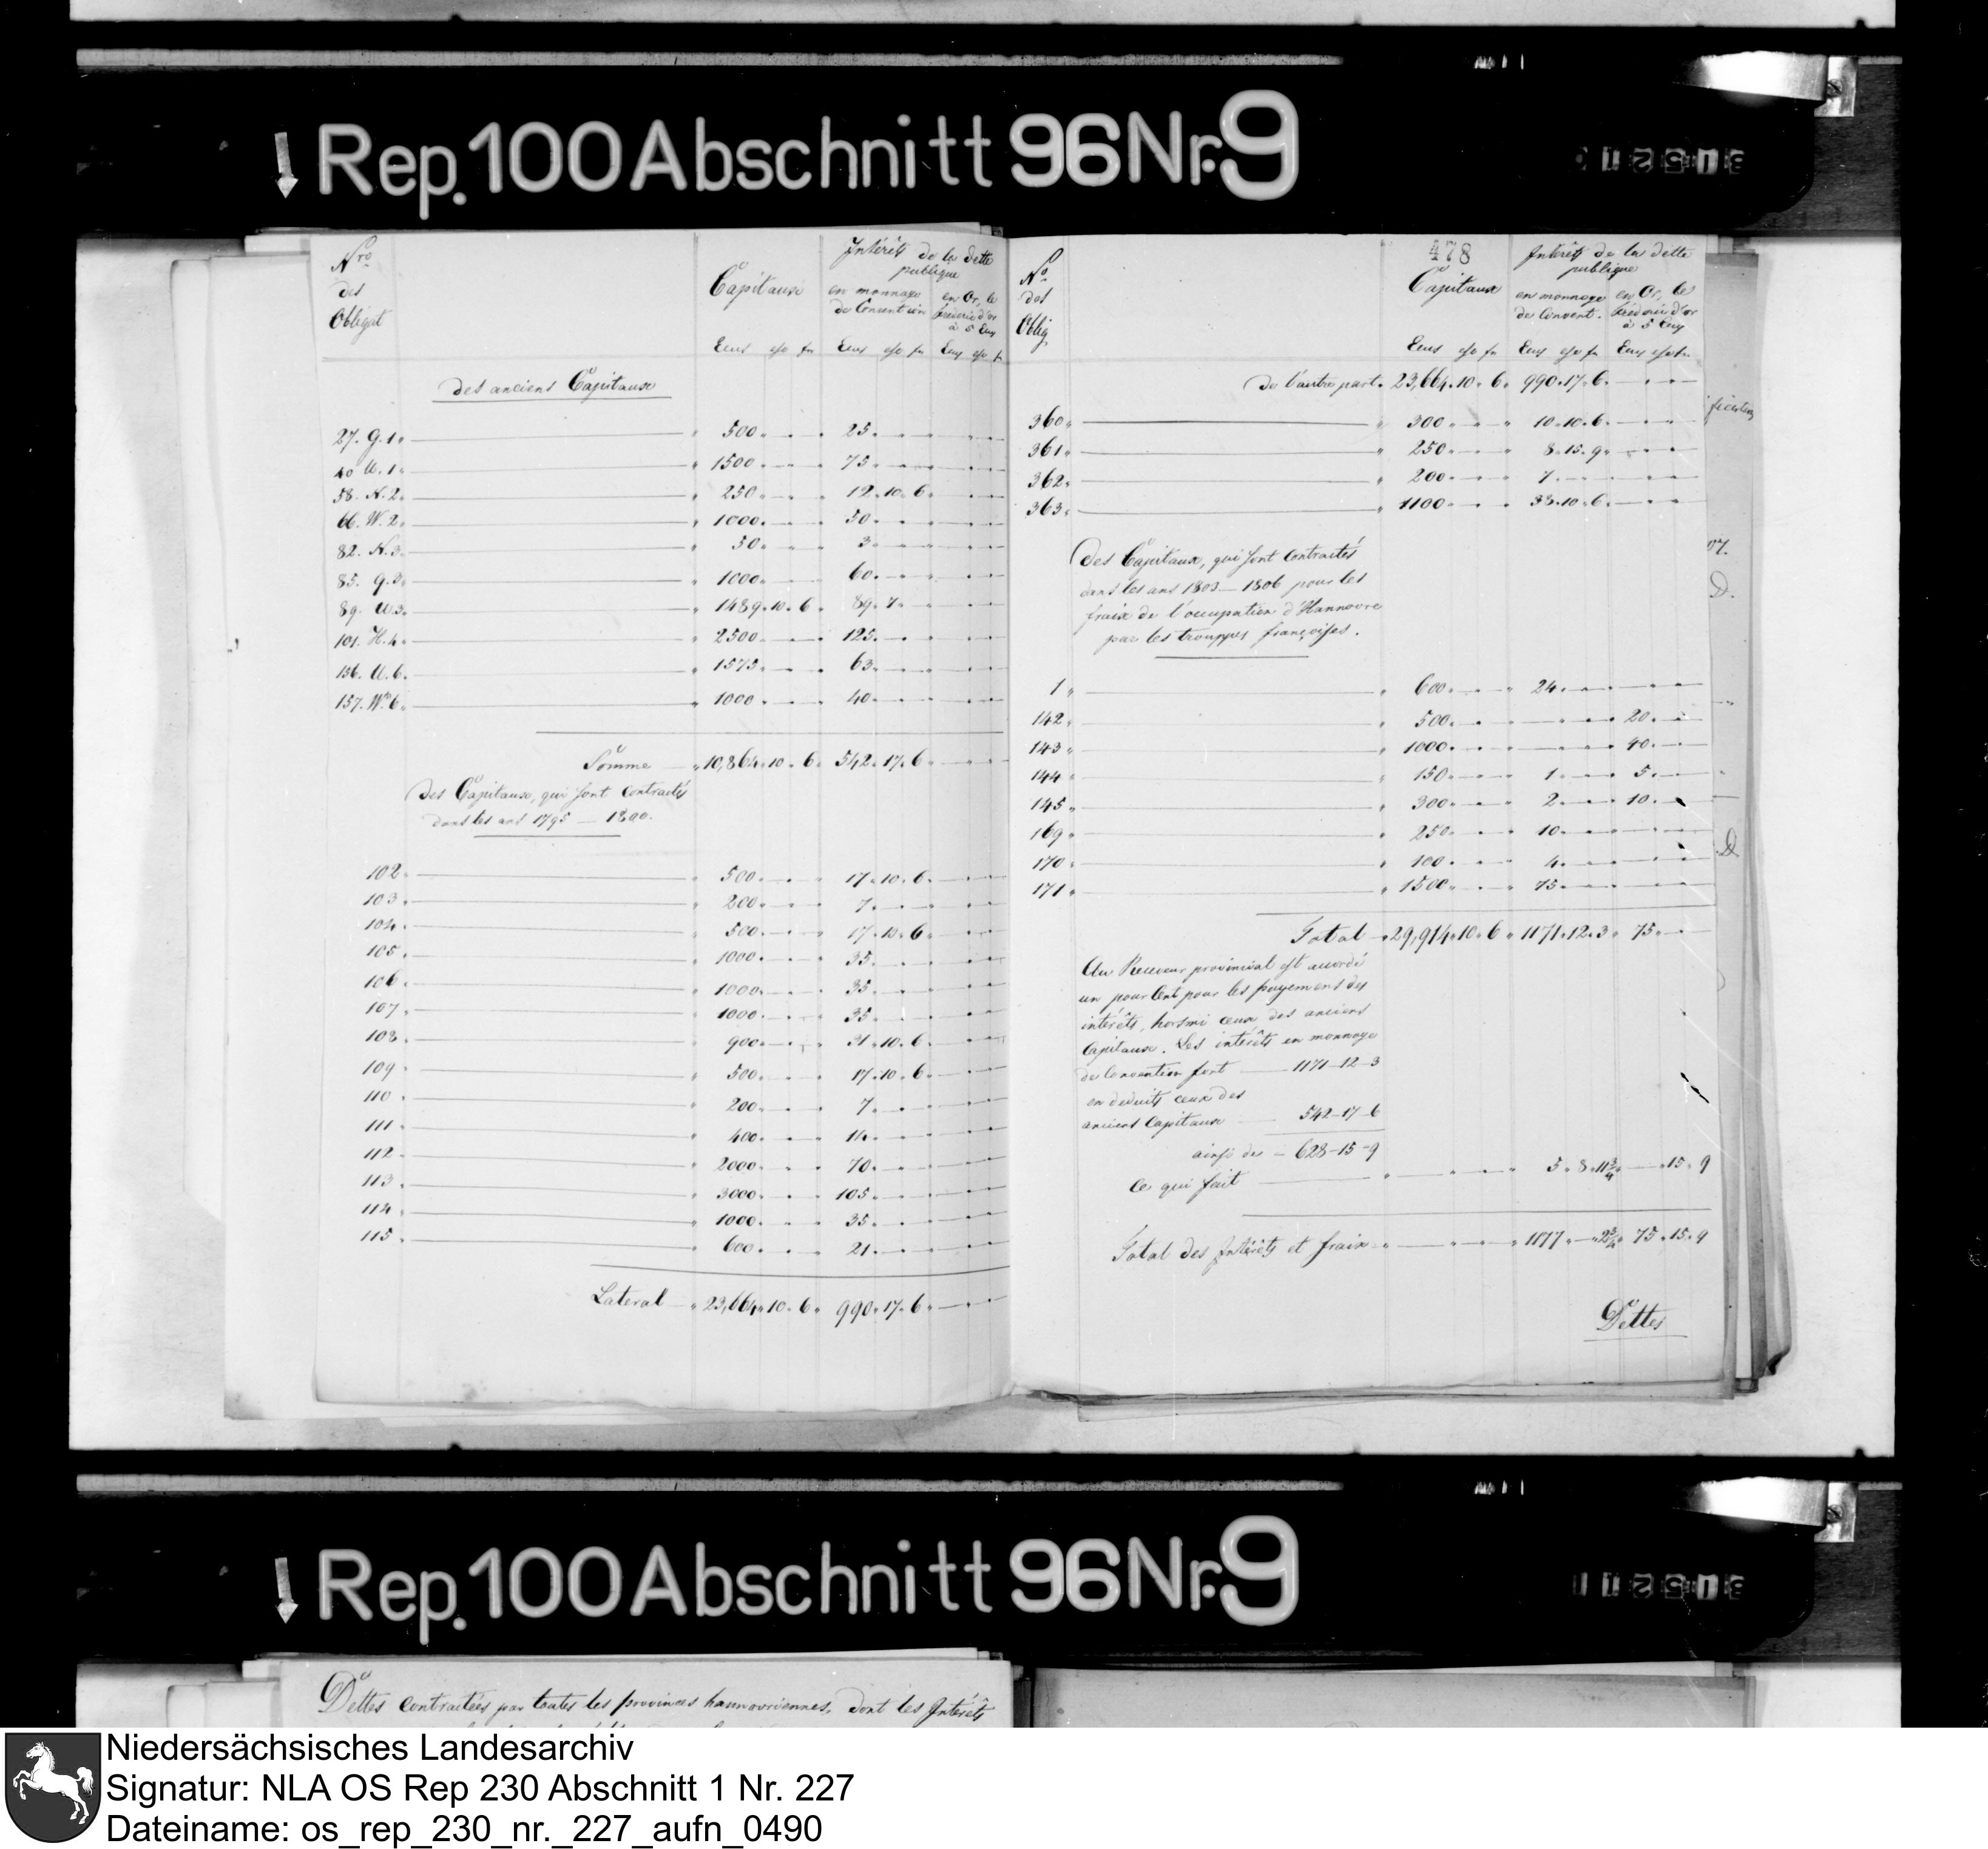 Rep. 100 Abschnitt 96 Nr. 9
Nro
des
Obligat
Capitaux
Intérêts de la dette
publique
en monnaye
de Convention
en Or, le
fréderic d'or
à 5 Ecus
Ecus
des anciens Capitaux
27. G. 1. 500. 25.
40 U. 1. 1500. 75.
58. N. 2. 250. 12. 10. 6.
66. W. 2. 1000. 50.
82. N. 3. 50. 3.
85. G. 2. 1000. 60.
89. U. 3. 1489. 10. 6. 89. 7.
101. H. 4. 2500. 125.
156. U. 6. 1575. 63.
157. W. 6. 1000. 40.
Somme 10,864. 10. 6. 542. 17. 6.
des Capitaux, qui sont contractés
dans les ans 1795 — 1800.
102. 500. 17. 10. 6.
103. 200. 7.
104. 500. 17. 10. 6.
105. 1000. 35.
106. 1000. 35.
107. 1000. 35.
108. 900. 31. 10. 6.
109. 500. 17. 10. 6.
110. 200. 7.
111. 400. 14.
112. 2000. 70.
113. 3000. 105.
114. 1000. 35.
115. 600. 21.
Lateral 23,664. 10. 6. 990. 17. 6.
478
No
des
Oblig.
Capitaux
Intérêts de la dette
publique
en monnaye
de Convent.
en Or, le
fréderic d'or
à 5 Ecus
Ecus
de l'autre part. 23,664. 10. 6. 990. 17. 6.
360. 300. 10. 10. 6.
361. 250. 8. 15. 9.
362. 200. 7.
363. 1100. 38. 10. 6.
Des Capitaux, qui sont contractés
dans les ans 1803 — 1806 pour les
fraix de l'occupation d'Hannovre
par les trouppes françoises.
1. 600. 24.
142. 500. 20.
143. 1000. 40.
144. 150. 1. 5.
145. 300. 2. 10.
169. 250. 10.
170. 100. 4.
171. 1500. 75.
Total 29,914. 10. 6. 1171. 12. 3. 75.
Au Receveur provincial est accordé
un pour Cent pour les payemens des
intérêts, hormi ceux des anciens
Capitaux. Les intérêts en monnaye
de Convention font — 1171 — 12 — 3
en deduits ceux des
anciens Capitaux 542 — 17 — 6
ainsi de — 628 — 15 — 9
ce qui fait 5. 8. 11¾. 15. 9
Total des Intérêts et fraix 1177. — 2¾. 75. 15. 9
Dettes
Rep. 100 Abschnitt 96 Nr. 9
Dettes contractées par toutes les provinces hannovriennes, dont les Intérêts
Niedersächsisches Landesarchiv
Signatur: NLA OS Rep 230 Abschnitt 1 Nr. 227
Dateiname: os_rep_230_nr._227_aufn_0490